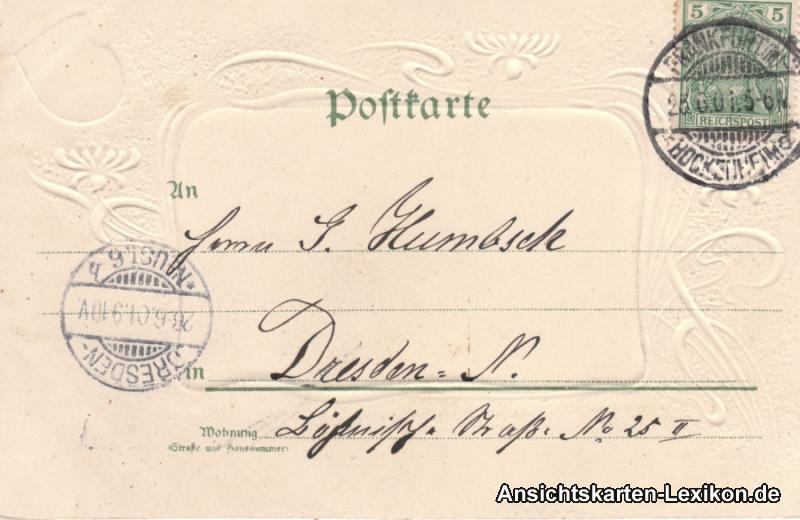 5 5
REICHSPOST
FRANKFURT
26.6.01. 5-6N.
BOCKENHEIM
Postkarte
An
Herrn G. Humbsch
DRESDEN-
26.6.01. 9-10V.
in Dresden=N.
Wohnung
(Straße und Hausnummer)
Straße No 25 II
Ansichtskarten-Lexikon.de